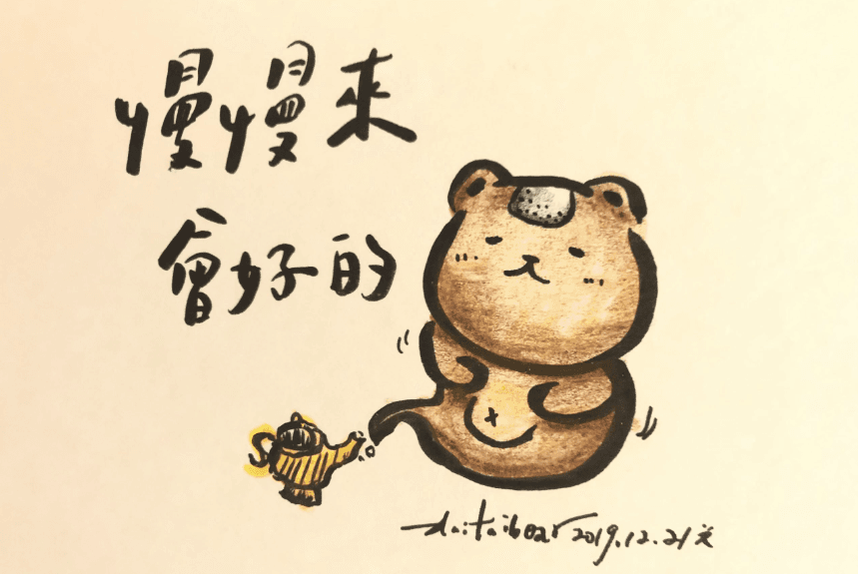 慢慢來
會好的
daitaibear 2019.12.21